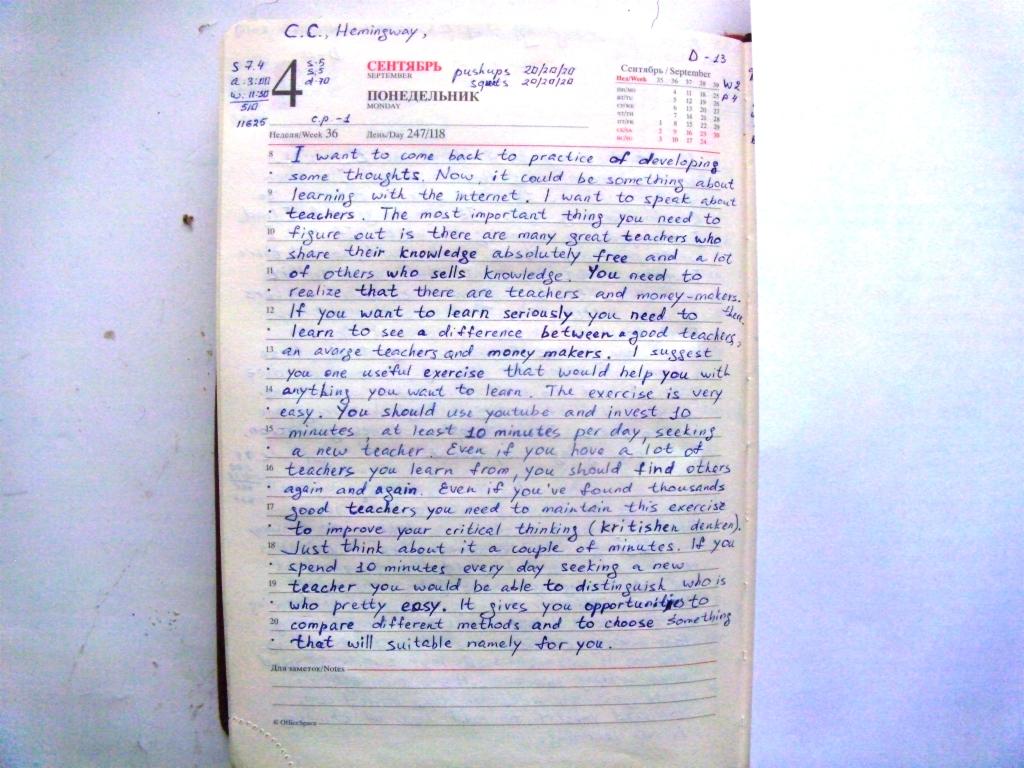 C.C., Hemingway,
D-13
S 7.4
a. 3:00
w. 11:30
510
11625
4
S.5
S.5
d.70
c.p.-1
СЕНТЯБРЬ
SEPTEMBER
ПОНЕДЕЛЬНИК
MONDAY
pushups 20/20/20
squats 20/20/20
Сентябрь / September
Нед/Week 35 36 37 38 39
пн/mo 4 11 18 25
вт/tu 5 12 19 26
ср/we 6 13 20 27
чт/th 7 14 21 28
пт/fr 1 8 15 22 29
сб/sa 2 9 16 23 30
вс/su 3 10 17 24
W2
P4
Неделя/Week 36 День/Day 247/118
8 I want to come back to practice of developing
some thoughts. Now, it could be something about
9 learning with the internet. I want to speak about
teachers. The most important thing you need to
10 figure out is there are many great teachers who
share their knowledge absolutely free and a lot
11 of others who sells knowledge. You need to
realize that there are teachers and money-makers.
12 If you want to learn seriously you need to then
learn to see a difference between a good teachers,
13 an avarge teachers and money makers. I suggest
you one useful exercise that would help you with
14 anything you want to learn. The exercise is very
easy. You should use youtube and invest 10
15 minutes, at least 10 minutes per day, seeking
a new teacher. Even if you have a lot of
16 teachers you learn from, you should find others
again and again. Even if you've found thousands
17 good teachers you need to maintain this exercise
to improve your critical thinking (kritishen denken).
18 Just think about it a couple of minutes. If you
spend 10 minutes every day seeking a new
19 teacher you would be able to distinguish who is
who pretty easy. It gives you opportunities to
20 compare different methods and to choose something
that will suitable namely for you.
Для заметок/Notes
© OfficeSpace